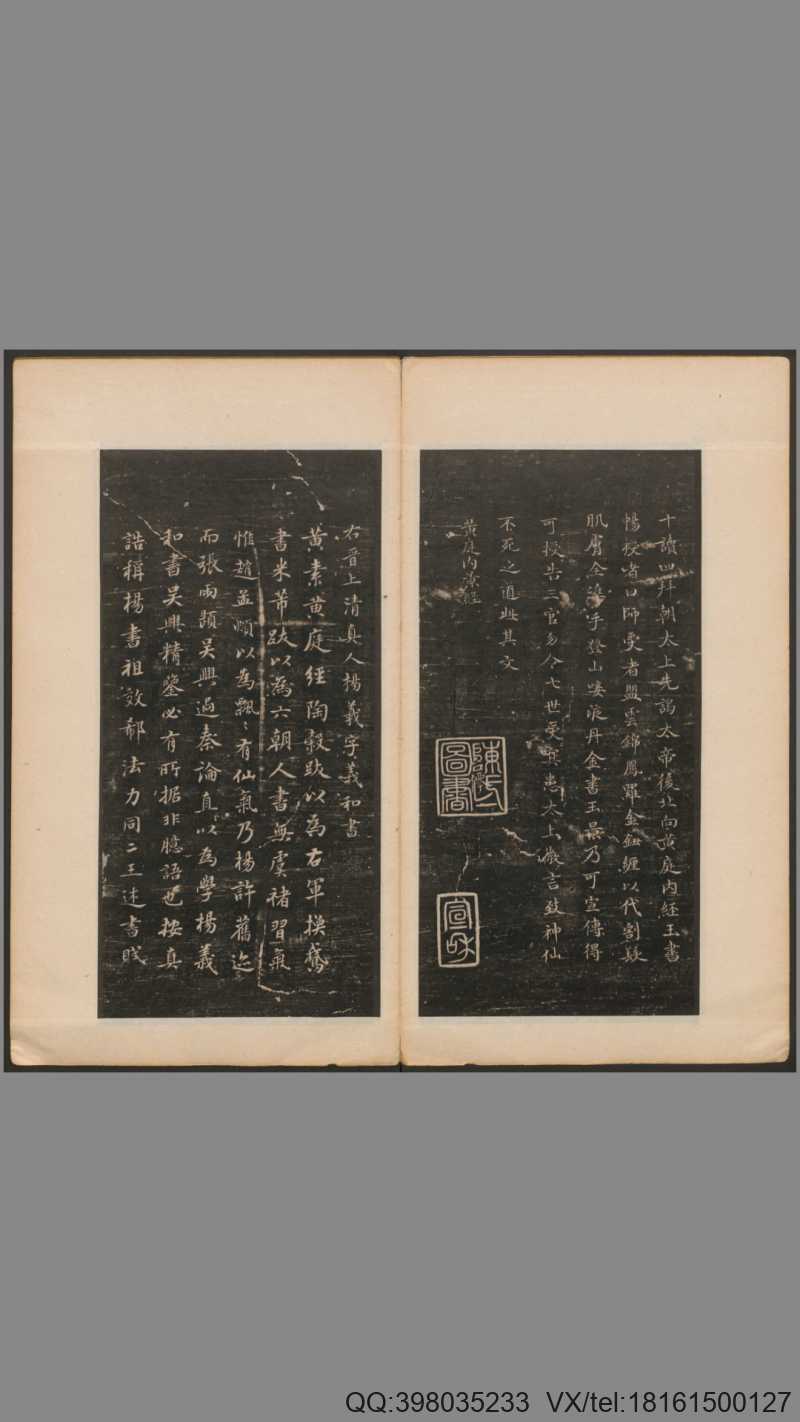 十讀四拜朝太上先謁太帝後北向黃庭內経玉書
暢授者曰師受者盟雲錦鳳羅金鈕纏以代割髮
肌膚全攜手登山歃液丹金書玉景乃可宣傳得
可授告三官勿令七世受冥患太上微言致神仙
不死之道此其文
黃庭內景經
陳氏圖書
宣和
右晉上清真人楊羲字羲和書
黃素黃庭経陶穀跋以為右軍換鵞
書米芾跋以為六朝人書無虞褚習氣
惟趙孟頫以為飄〻有仙氣乃楊許舊迹
而張雨題吳興過秦論直以為學楊羲
和書吳興精鑒必有所据非臆語也按真
誥稱楊書祖效郗法力同二王述書賦
QQ:398035233 VX/tel:18161500127